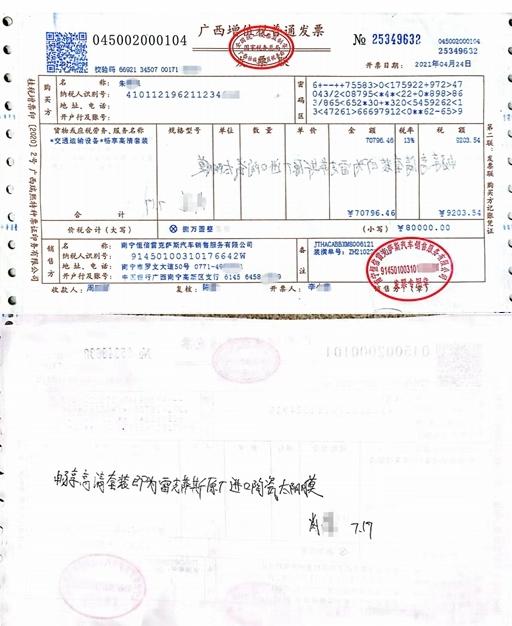 045002000104
广西增值税普通发票
№ 25349632
045002000104
25349632
校验码 66921 34507 00171
开票日期：2021年04月24日
购买方
名 称：朱
纳税人识别号：410112196211234
地址、电话：
开户行及账号：
密码区
6+-++75583>0<175922+972>47
043/2<08795<*4<22-0*898>86
3/865<652*30+*320<5459262<1
3<47261>66697912<0**62-65>9
货物或应税劳务、服务名称 规格型号 单位 数量 单价 金额 税率 税额
*交通运输设备*畅享高清套装 70796.46 13% 9203.54
合计 ￥70796.46 ￥9203.54
价税合计（大写） ⊗ 捌万圆整 （小写）￥80000.00
销售方
名 称：南宁恒信雷克萨斯汽车销售服务有限公司
纳税人识别号：91450100310176642W
地址、电话：南宁市罗文大道50号 0771-49
开户行及账号：中国银行广西南宁高新区支行 6145 6458
备注
JTHACABBXM5006121
装潢单号：ZH21022
收款人：周 复核：陈 开票人：李
第二联：发票联 购买方记账凭证
南宁恒信雷克萨斯汽车销售服务有限公司
91450100310
发票专用章
畅享高清套装即为雷克萨斯原厂进口陶瓷太阳膜
7.17